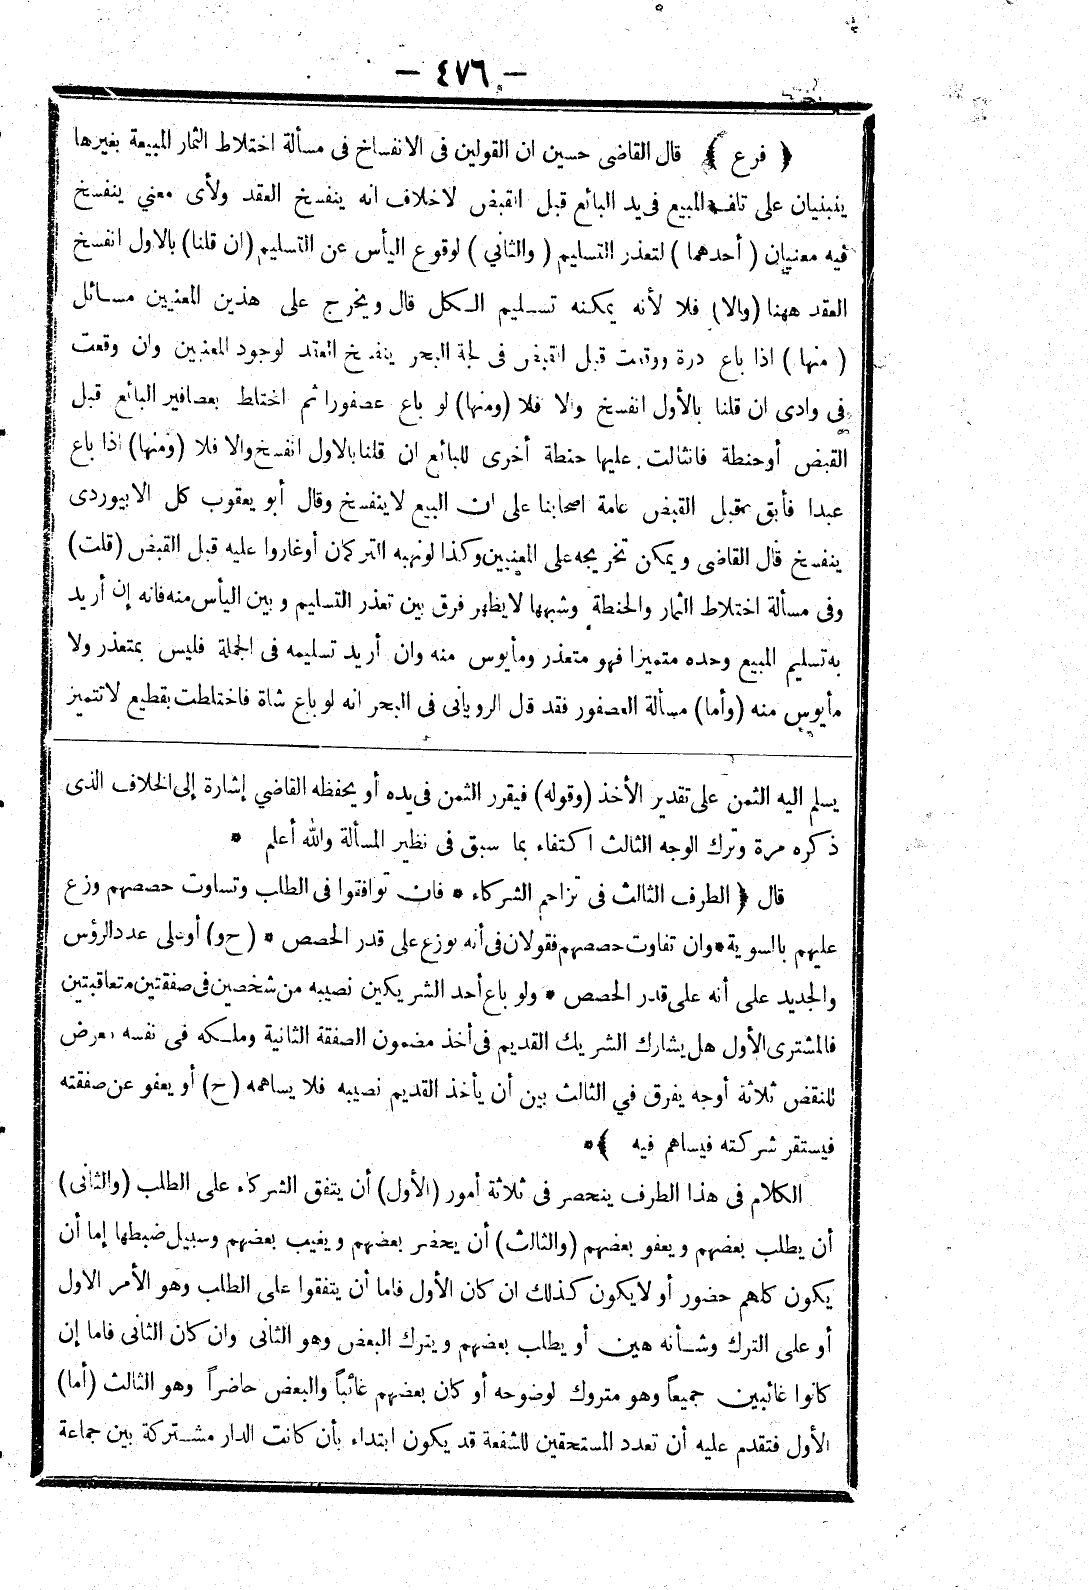 — ٤٧٦ —
﴿ فرع ﴾ قال القاضى حسين ان القولين فى الانفساخ فى مسألة اختلاط الثمار المبيعة بغيرها
ينبنيان على تلف المبيع فى يد البائع قبل القبض لاخلاف انه ينفسخ العقد ولأى معني ينفسخ
فيه معنيان ( أحدهما ) لتعذر التسليم ( والثاني ) لوقوع اليأس عن التسليم (ان قلنا) بالاول انفسخ
العقد ههنا (والا) فلا لأنه يمكنه تسليم الكل قال ويخرج على هذين المعنيين مسائل
( منها ) اذا باع درة ووقعت قبل القبض فى لجة البحر ينفسخ العقد لوجود المعنيين وان وقعت
فى وادى ان قلنا بالأول انفسخ والا فلا (ومنها) لو باع عصفورا ثم اختلط بعصافير البائع قبل
القبض أوحنطة فانثالت عليها حنطة أخرى للبائع ان قلنا بالاول انفسخ والا فلا (ومنها) اذا باع
عبدا فأبق قبل القبض عامة اصحابنا على ان البيع لاينفسخ وقال أبو يعقوب كل الابيوردى
ينفسخ قال القاضى ويمكن تخريجه على المعنيين وكذا لونهبه التركمان أوغاروا عليه قبل القبض (قلت)
وفى مسألة اختلاط الثمار والحنطة وشبهها لايظهر فرق بين تعذر التسليم وبين اليأس منه فانه إن أريد
به تسليم المبيع وحده متميزا فهو متعذر ومأيوس منه وان أريد تسليمه فى الجملة فليس بمتعذر ولا
مأيوس منه (وأما) مسألة العصفور فقد قل الرويانى فى البحر انه لو باع شاة فاختلطت بقطيع لاتتميز
يسلم اليه الثمن على تقدير الأخذ (وقوله) فيقرر الثمن فى يده أو يحفظه القاضي إشارة إلى الخلاف الذى
ذكره مرة وترك الوجه الثالث اكتفاء بما سبق فى نظير المسألة والله أعلم *
قال ﴿ الطرف الثالث فى تزاحم الشركاء * فان توافقوا فى الطلب وتساوت حصصهم وزع
عليهم بالسوية * وان تفاوت حصصهم فقولان فى أنه يوزع على قدر الحصص * (ح و) أو على عدد الرؤس
والجديد على أنه على قدر الحصص * ولو باع أحد الشريكين نصيبه من شخصين فى صفقتين متعاقبتين
فالمشترى الأول هل يشارك الشريك القديم فى أخذ مضمون الصفقة الثانية وملكه فى نفسه معرض
للنقض ثلاثة أوجه يفرق في الثالث بين أن يأخذ القديم نصيبه فلا يساهمه (ح) أو يعفو عن صفقته
فيستقر شركته فيساهم فيه ﴾ *
الكلام فى هذا الطرف ينحصر فى ثلاثة أمور (الأول) أن يتفق الشركاء على الطلب (والثانى)
أن يطلب بعضهم ويعفو بعضهم (والثالث) أن يحضر بعضهم ويغيب بعضهم وسبيل ضبطها إما أن
يكون كلهم حضور أو لايكون كذلك ان كان الأول فاما أن يتفقوا على الطلب وهو الأمر الاول
أو على الترك وشأنه هين أو يطلب بعضهم ويترك البعض وهو الثانى وان كان الثانى فاما إن
كانوا غائبين جميعاً وهو متروك لوضوحه أو كان بعضهم غائباً والبعض حاضراً وهو الثالث (أما)
الأول فتقدم عليه أن تعدد المستحقين للشفعة قد يكون ابتداء بأن كانت الدار مشتركة بين جماعة